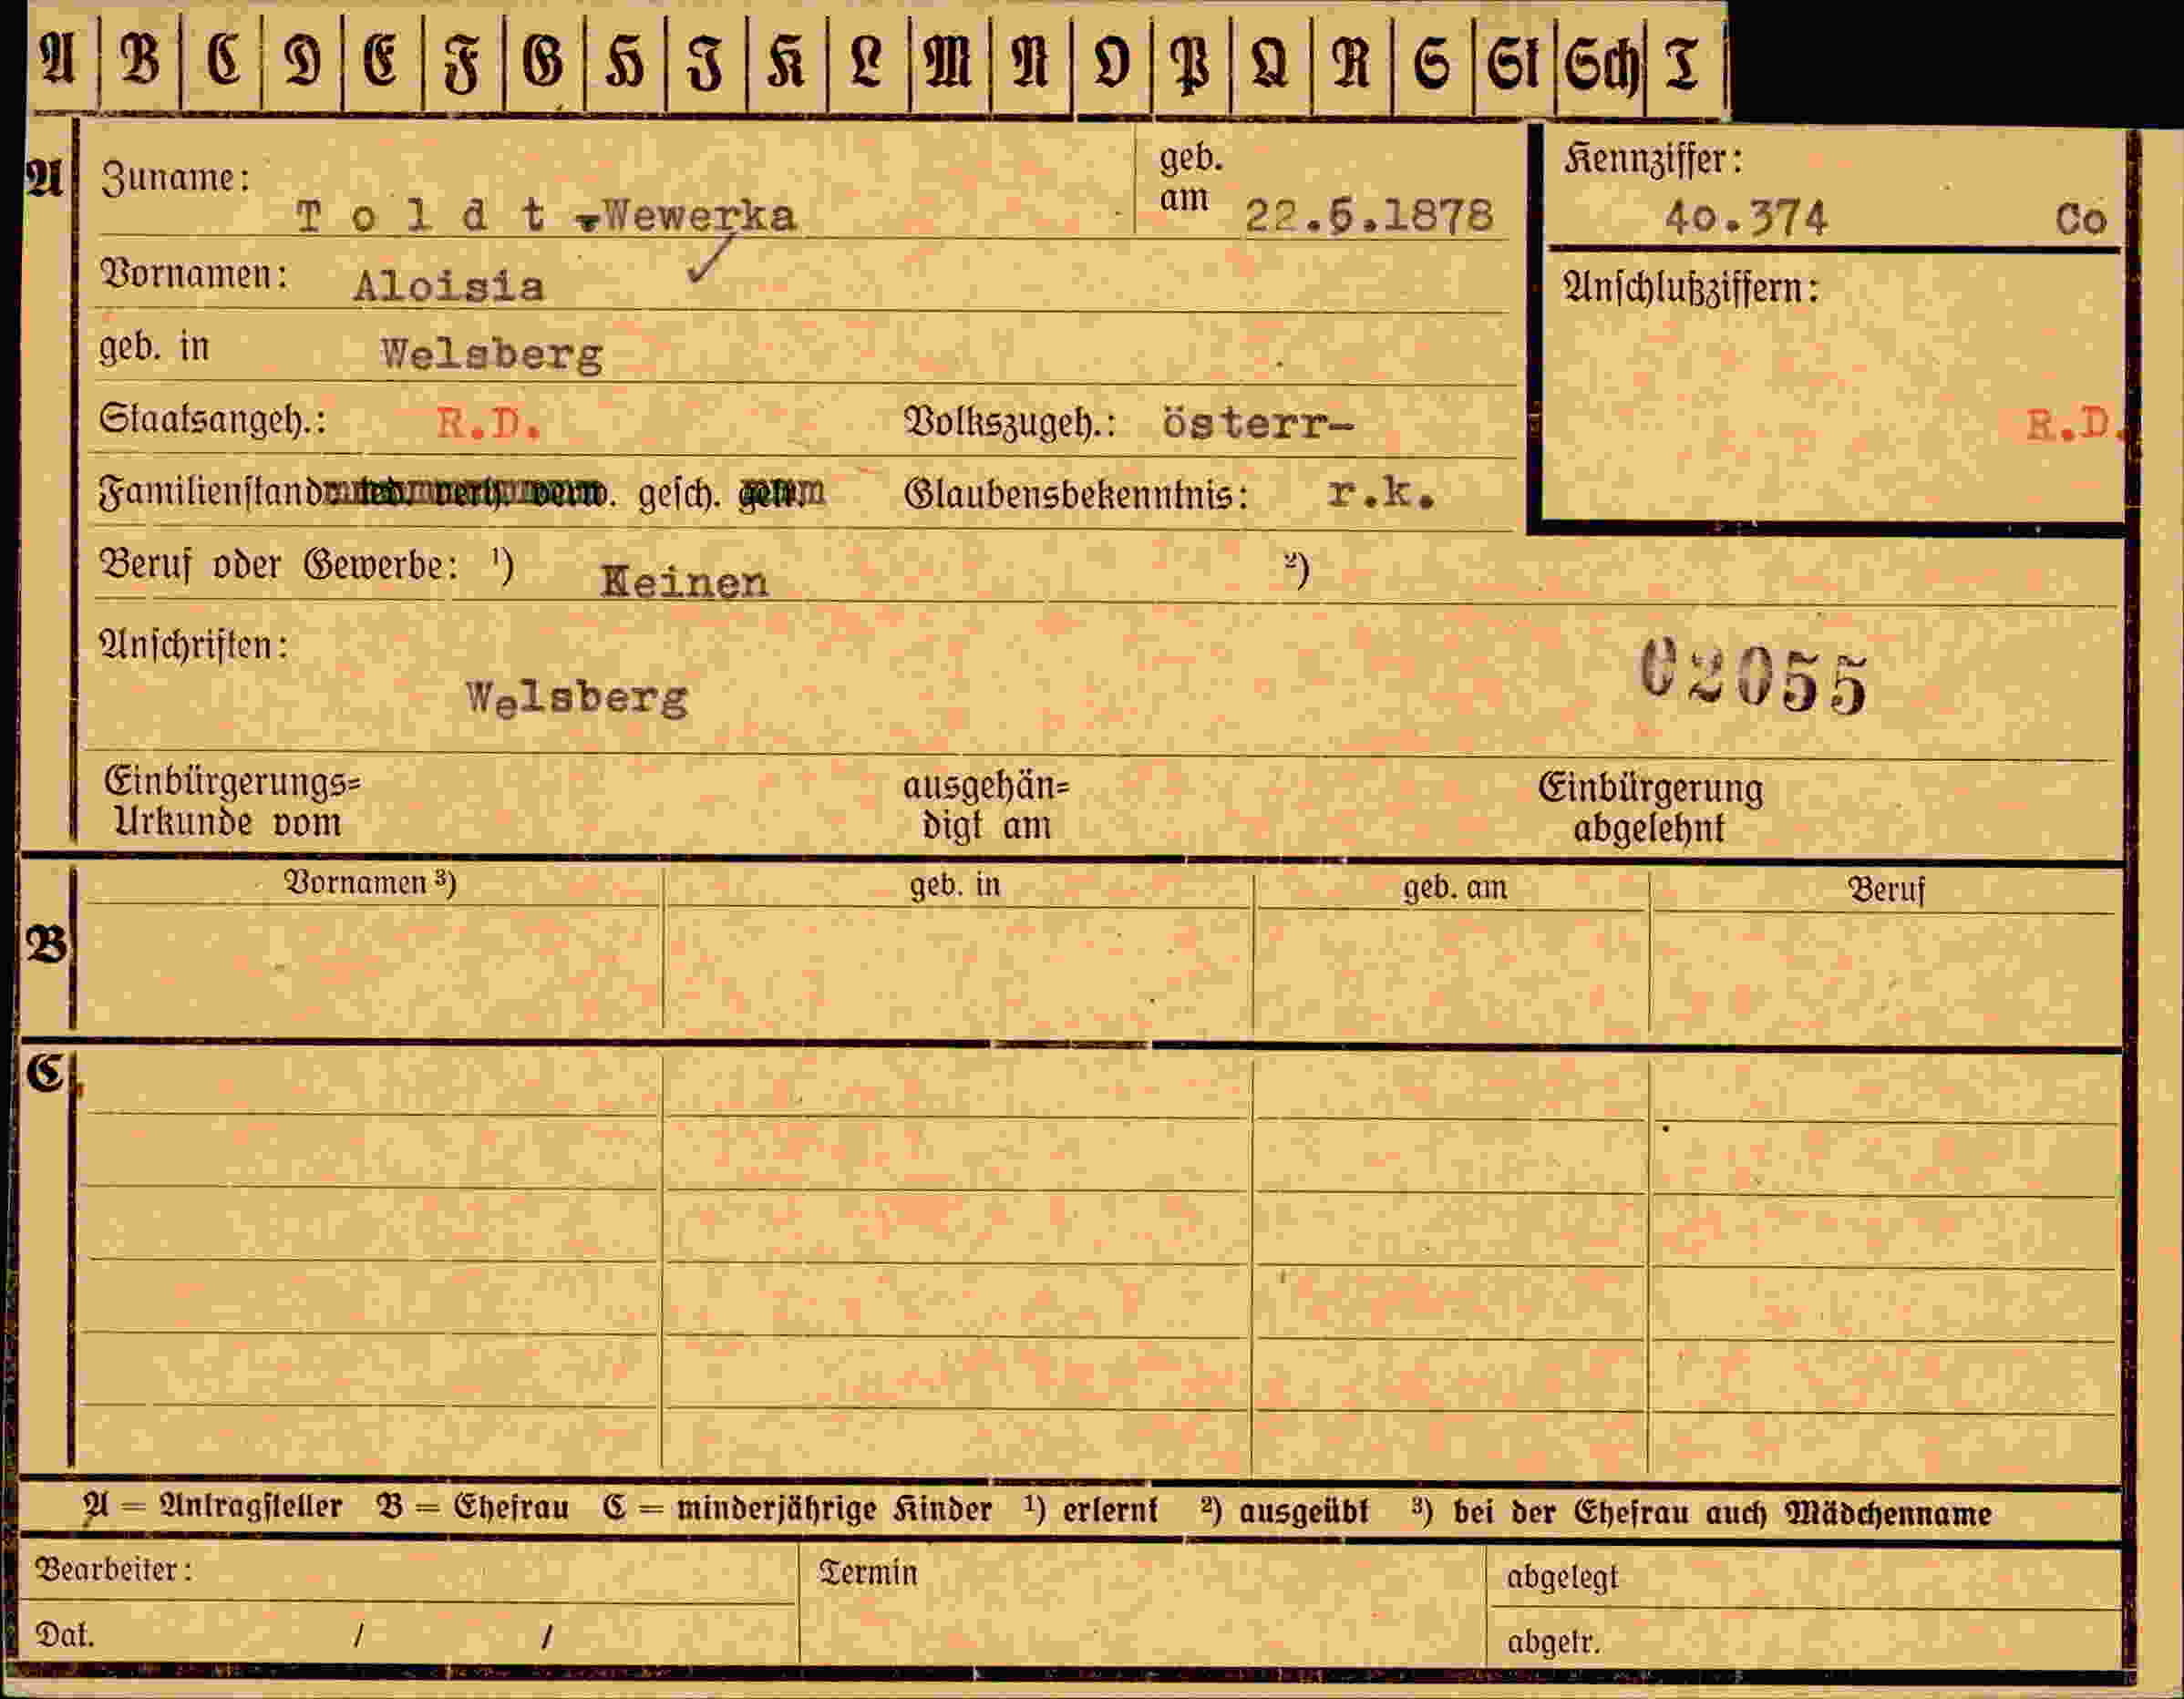 A B C D E F G H I K L M N O P Q R S St Sch T
A Zuname: Toldt-Wewerka geb. am 22.6.1878 Kennziffer: 40.374 Co
Vornamen: Aloisia Anschlußziffern:
geb. in Welsberg
Staatsangeh.: R.D. Volkszugeh.: österr- R.D.
Familienstand gesch. Glaubensbekenntnis: r.k.
Beruf oder Gewerbe: ¹) Keinen ²)
Anschriften: 02055
Welsberg
Einbürgerungs= ausgehän= Einbürgerung
Urkunde vom digt am abgelehnt
Vornamen ³) geb. in geb. am Beruf
B
C
A = Antragsteller B = Ehefrau C = minderjährige Kinder ¹) erlernt ²) ausgeübt ³) bei der Ehefrau auch Mädchenname
Bearbeiter: Termin abgelegt
Dat. / / abgetr.